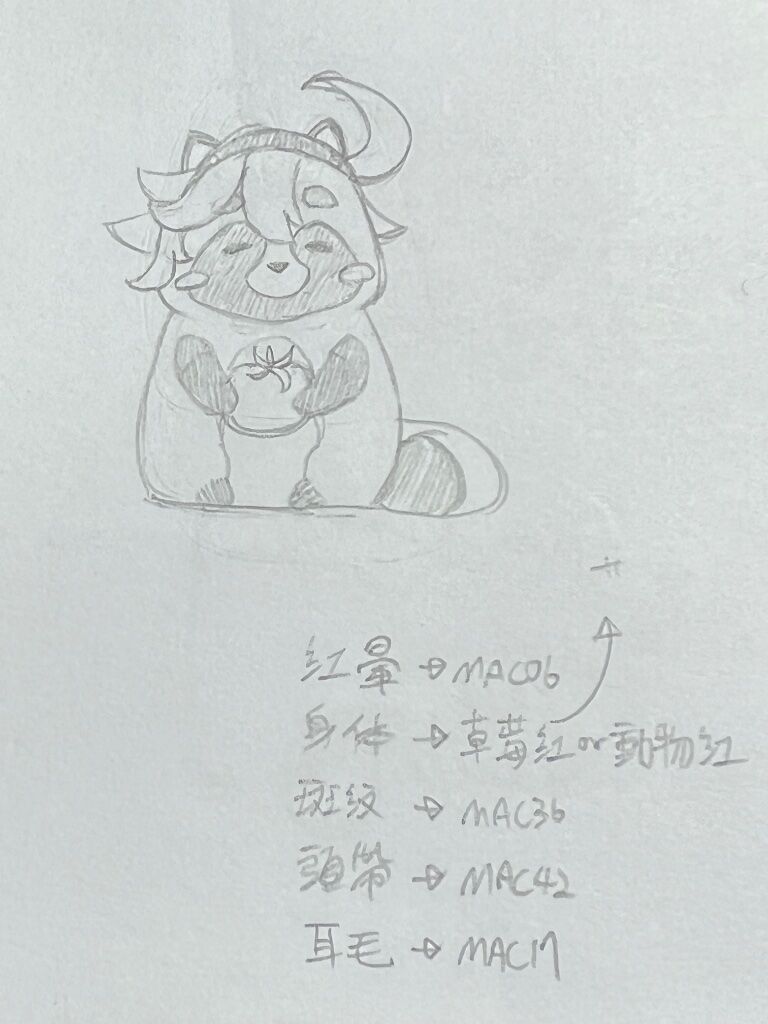 红暈→MAC06
身体→草莓红or動物红
斑纹→MAC36
頭带→MAC42
耳毛→MAC17